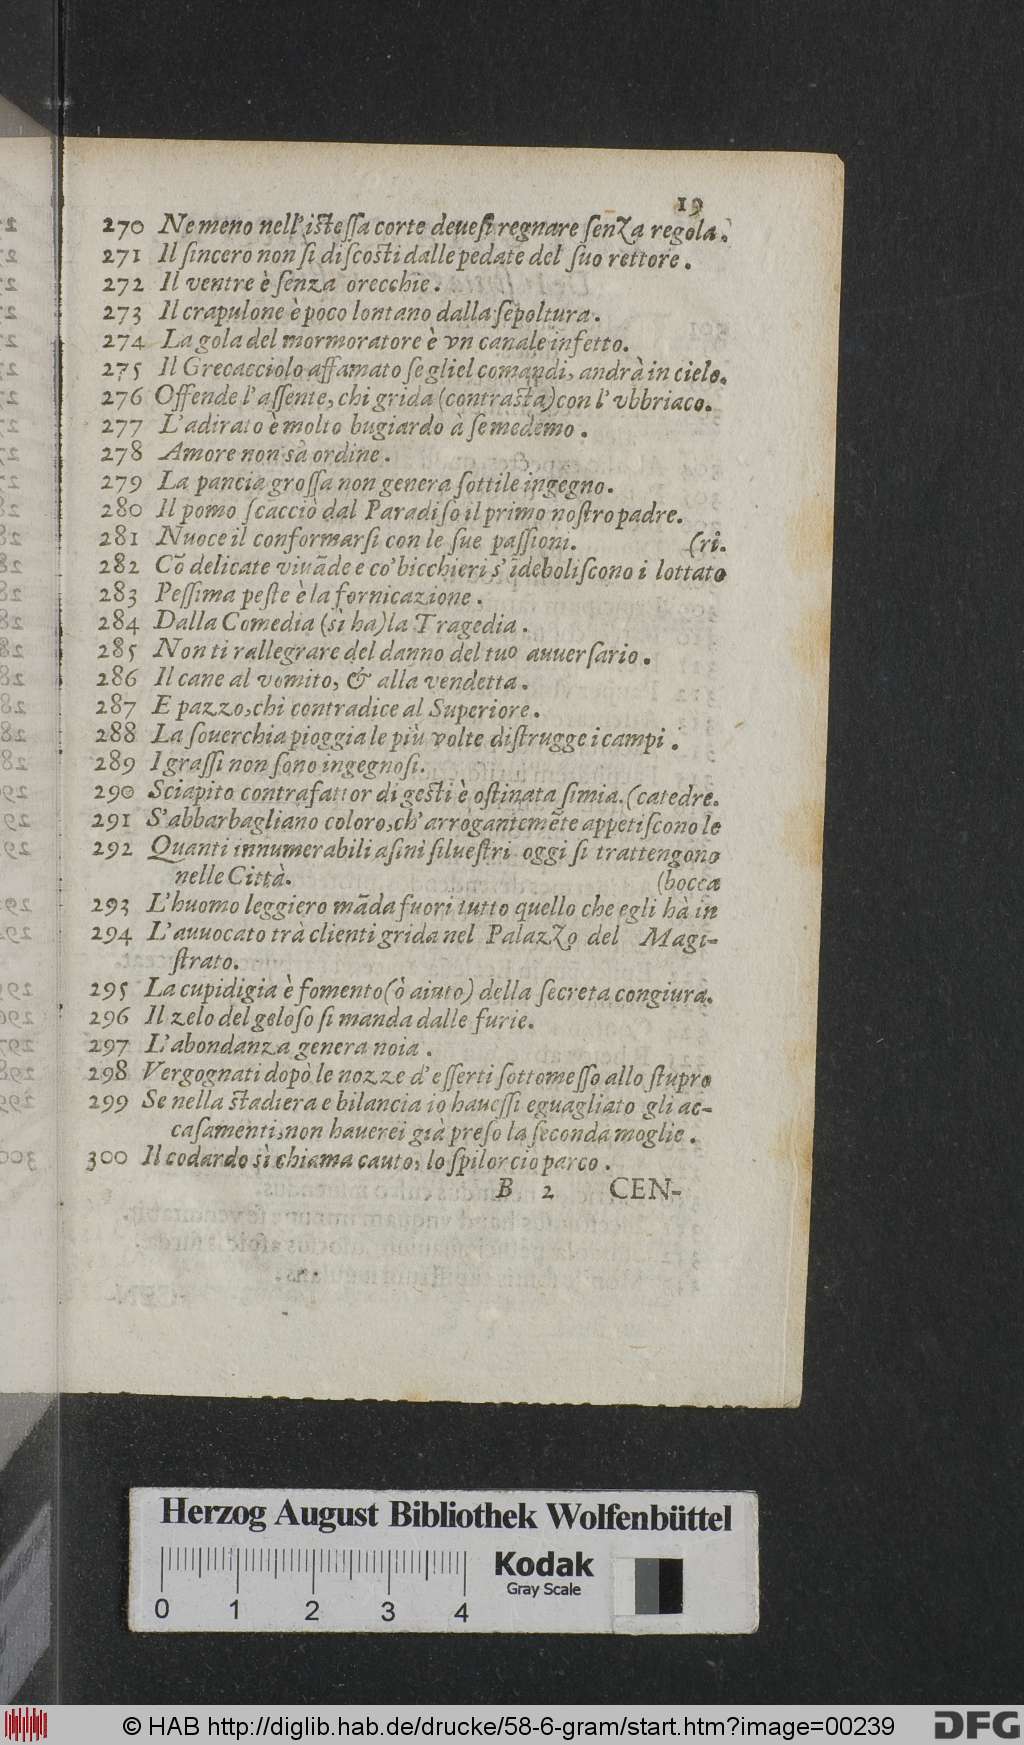 19
270 Ne meno nell'istessa corte deuesi regnare senza regola.
271 Il sincero non si discosti dalle pedate del suo rettore.
272 Il ventre è senza orecchie.
273 Il crapulone è poco lontano dalla sepoltura.
274 La gola del mormoratore è vn canale infetto.
275 Il Grecacciolo affamato se gliel comandi, andrà in cielo.
276 Offende l'assente, chi grida (contrasta) con l'vbbriaco.
277 L'adirato è molto bugiardo à se medemo.
278 Amore non sà ordine.
279 La pancia grossa non genera sottile ingegno.
280 Il pomo scacciò dal Paradiso il primo nostro padre.
281 Nuoce il conformarsi con le sue passioni. (ri.
282 Cō delicate viuāde e co' bicchieri s'īdeboliscono i lottato
283 Pessima peste è la fornicazione.
284 Dalla Comedia (si ha) la Tragedia.
285 Non ti rallegrare del danno del tuo auuersario.
286 Il cane al vomito, & alla vendetta.
287 E pazzo, chi contradice al Superiore.
288 La souerchia pioggia le più volte distrugge i campi.
289 I grassi non sono ingegnosi.
290 Sciapito contrafattor di gesti è ostinata simia. (catedre.
291 S'abbarbagliano coloro, ch'arrogantemēte appetiscono le
292 Quanti innumerabili asini siluestri oggi si trattengono
nelle Città. (bocca
293 L'huomo leggiero māda fuori tutto quello che egli hà in
294 L'auuocato trà clienti grida nel Palazzo del Magi-
strato.
295 La cupidigia è fomento (ò aiuto) della secreta congiura.
296 Il zelo del geloso si manda dalle furie.
297 L'abondanza genera noia.
298 Vergognati dopò le nozze d'esserti sottomesso allo stupro
299 Se nella stadiera e bilancia io hauessi eguagliato gli ac-
casamenti, non hauerei già preso la seconda moglie.
300 Il codardo sì chiama cauto, lo spilorcio parco.
B 2 CEN-
Herzog August Bibliothek Wolfenbüttel
Kodak
Gray Scale
0 1 2 3 4
© HAB http://diglib.hab.de/drucke/58-6-gram/start.htm?image=00239
DFG